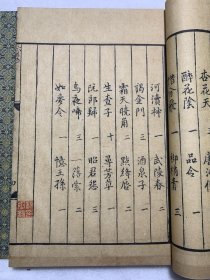 杏花天
醉花陰 一 品令 一
三
河瀆神 一 武陵春
謁金門 三 酒泉子
霜天曉角 二 點絳唇 二
生查子 十 尋芳草
阮郎歸 昭君怨 三
烏夜啼 三 一落索 二
如夢令 一 憶王孫